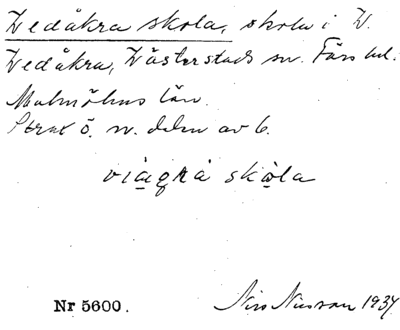 Vedåkra skola, skola i V.
Vedåkra, Västerstads sn. Färs hd.
Malmöhus län.
Strax ö. n. delen av b.
skola
Nr 5600. Nils Nilsson 1937